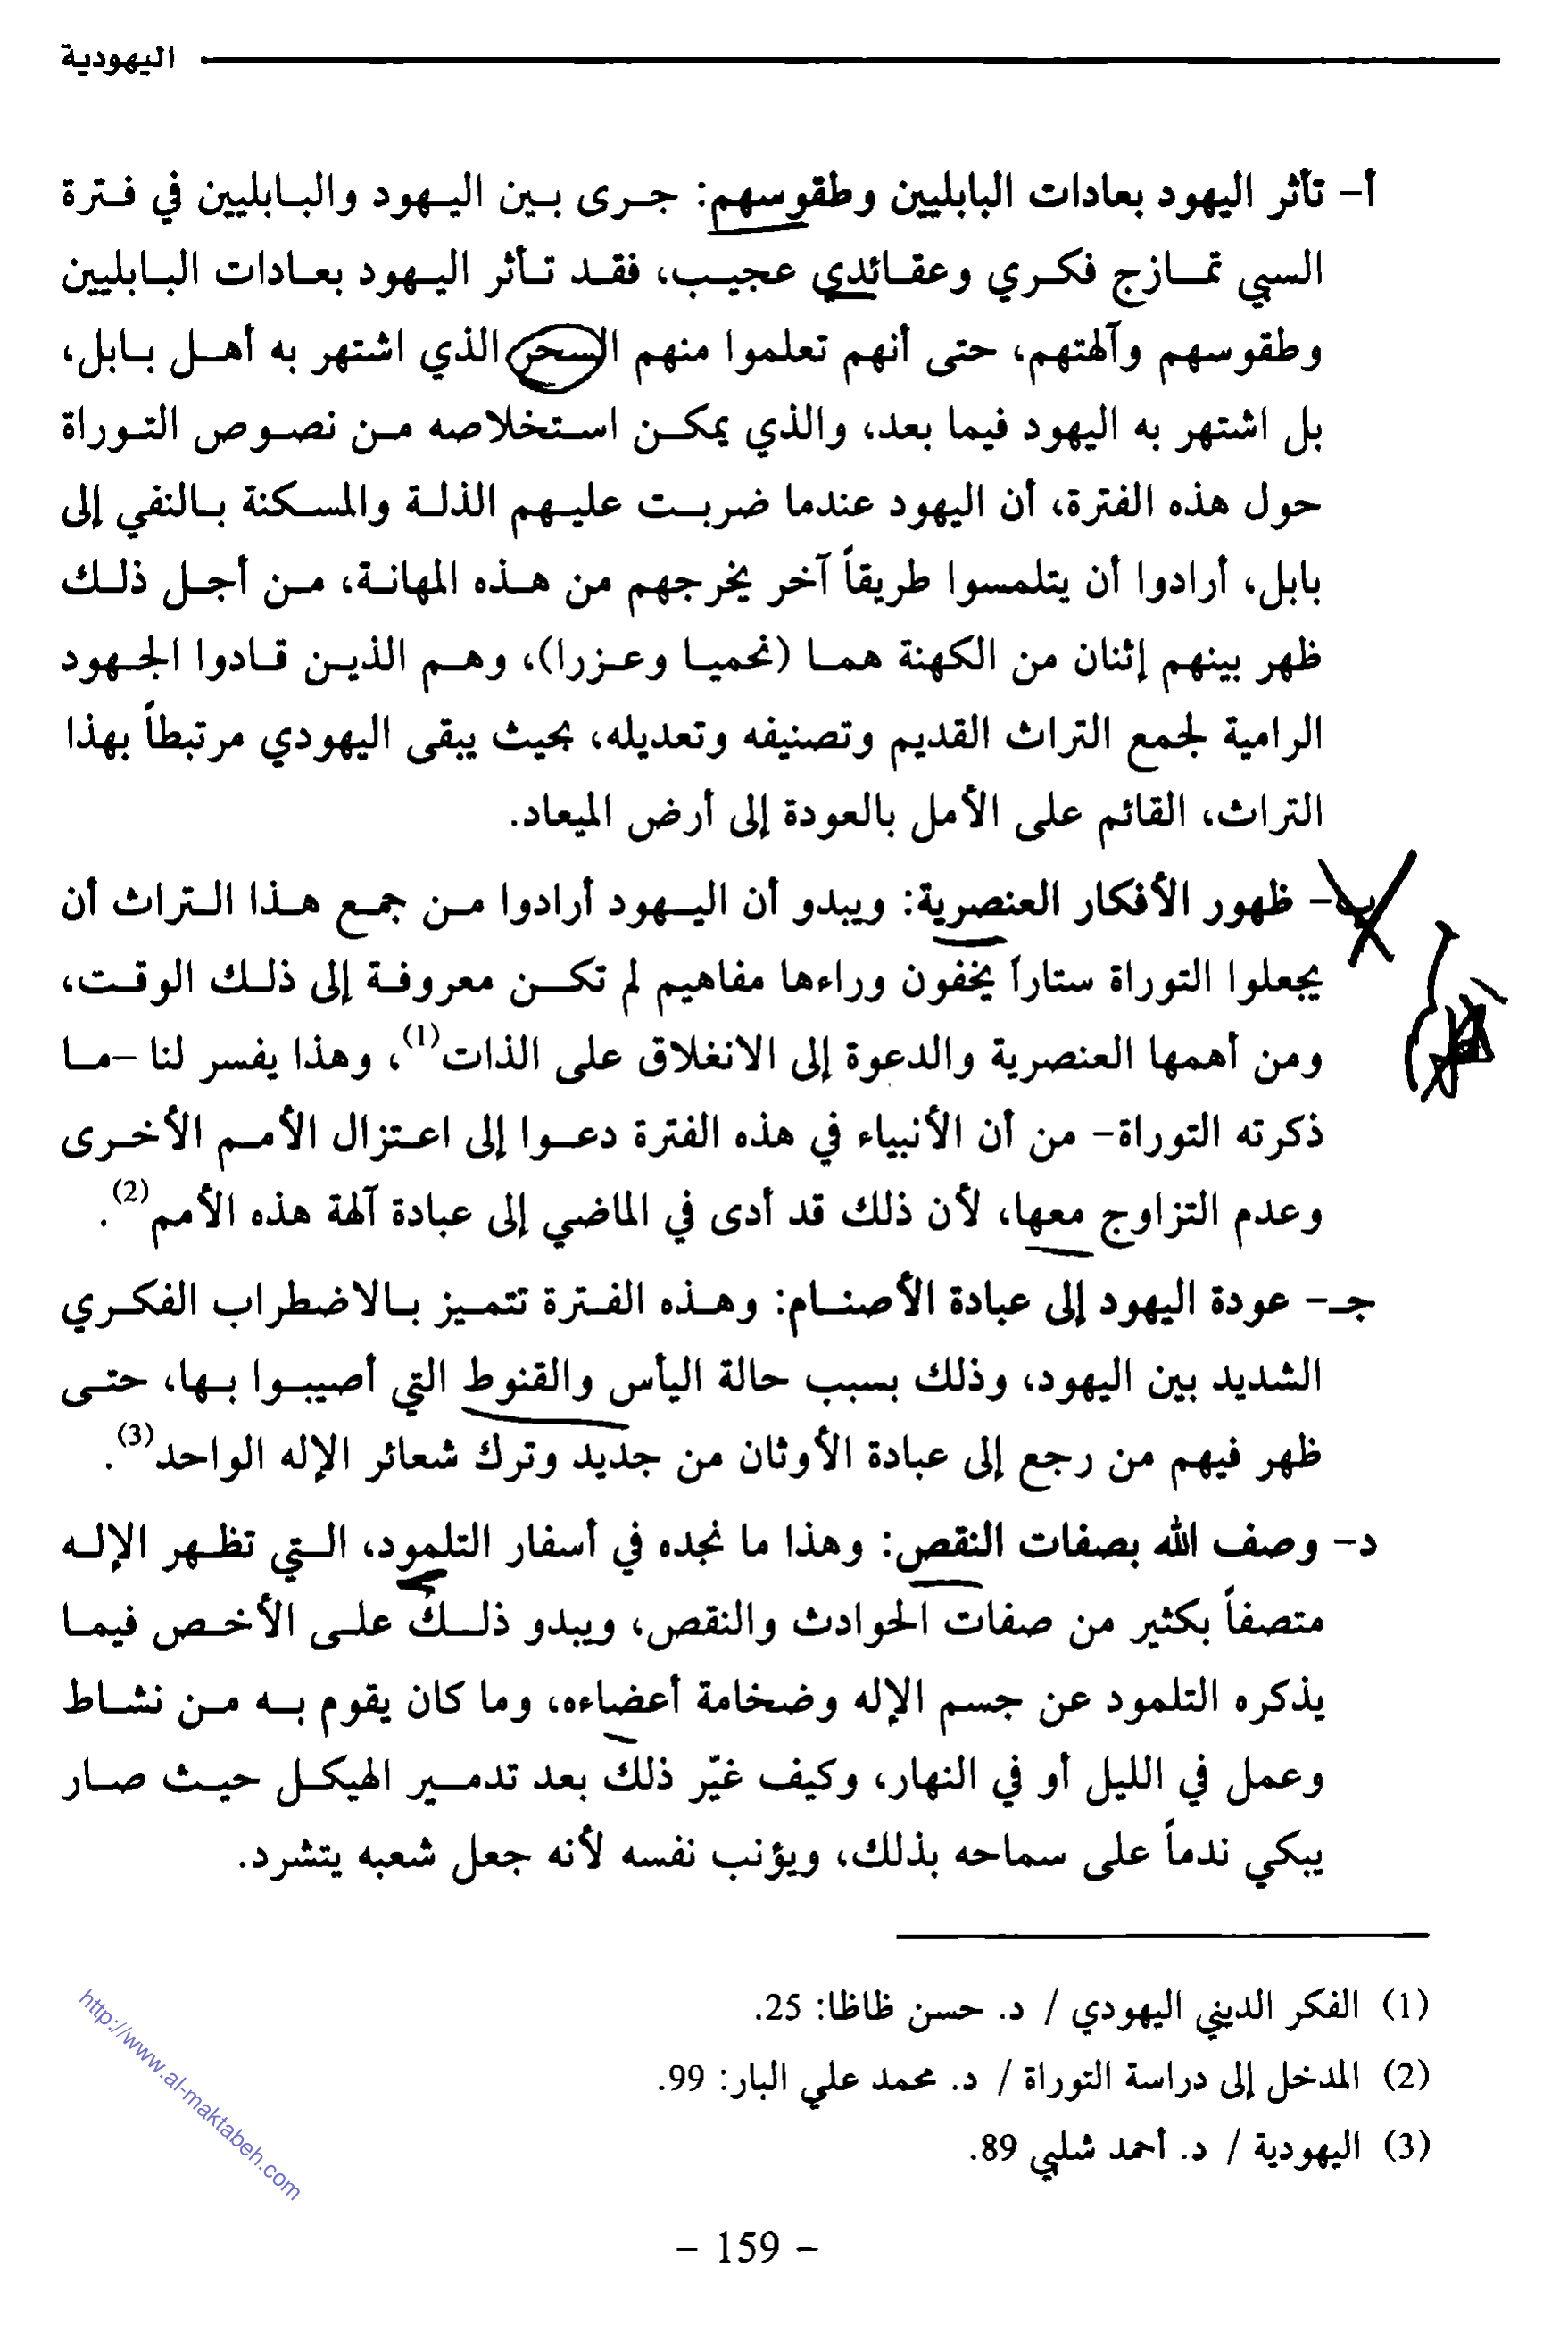 اليهودية
أ- تأثر اليهود بعادات البابليين وطقوسهم: جرى بين اليهود والبابليين في فترة
السبي تمازج فكري وعقائدي عجيب، فقد تأثر اليهود بعادات البابليين
وطقوسهم وآلهتهم، حتى أنهم تعلموا منهم السحر الذي اشتهر به أهل بابل،
بل اشتهر به اليهود فيما بعد، والذي يمكن استخلاصه من نصوص التوراة
حول هذه الفترة، أن اليهود عندما ضربت عليهم الذلة والمسكنة بالنفي إلى
بابل، أرادوا أن يتلمسوا طريقاً آخر يخرجهم من هذه المهانة، من أجل ذلك
ظهر بينهم إثنان من الكهنة هما (نحميا وعزرا)، وهم الذين قادوا الجهود
الرامية لجمع التراث القديم وتصنيفه وتعديله، بحيث يبقى اليهودي مرتبطاً بهذا
التراث، القائم على الأمل بالعودة إلى أرض الميعاد.
ب- ظهور الأفكار العنصرية: ويبدو أن اليهود أرادوا من جمع هذا التراث أن
يجعلوا التوراة ستاراً يخفون وراءها مفاهيم لم تكن معروفة إلى ذلك الوقت،
ومن أهمها العنصرية والدعوة إلى الانغلاق على الذات(1)، وهذا يفسر لنا -ما
ذكرته التوراة- من أن الأنبياء في هذه الفترة دعوا إلى اعتزال الأمم الأخرى
وعدم التزاوج معها، لأن ذلك قد أدى في الماضي إلى عبادة آلهة هذه الأمم(2).
جـ- عودة اليهود إلى عبادة الأصنام: وهذه الفترة تتميز بالاضطراب الفكري
الشديد بين اليهود، وذلك بسبب حالة اليأس والقنوط التي أصيبوا بها، حتى
ظهر فيهم من رجع إلى عبادة الأوثان من جديد وترك شعائر الإله الواحد(3).
د- وصف الله بصفات النقص: وهذا ما نجده في أسفار التلمود، التي تظهر الإله
متصفاً بكثير من صفات الحوادث والنقص، ويبدو ذلك على الأخص فيما
يذكره التلمود عن جسم الإله وضخامة أعضاءه، وما كان يقوم به من نشاط
وعمل في الليل أو في النهار، وكيف غيّر ذلك بعد تدمير الهيكل حيث صار
يبكي ندماً على سماحه بذلك، ويؤنب نفسه لأنه جعل شعبه يتشرد.
(1) الفكر الديني اليهودي / د. حسن ظاظا: 25.
(2) المدخل إلى دراسة التوراة / د. محمد علي البار: 99.
(3) اليهودية / د. أحمد شلبي 89.
http://www.al-maktabeh.com
- 159 -